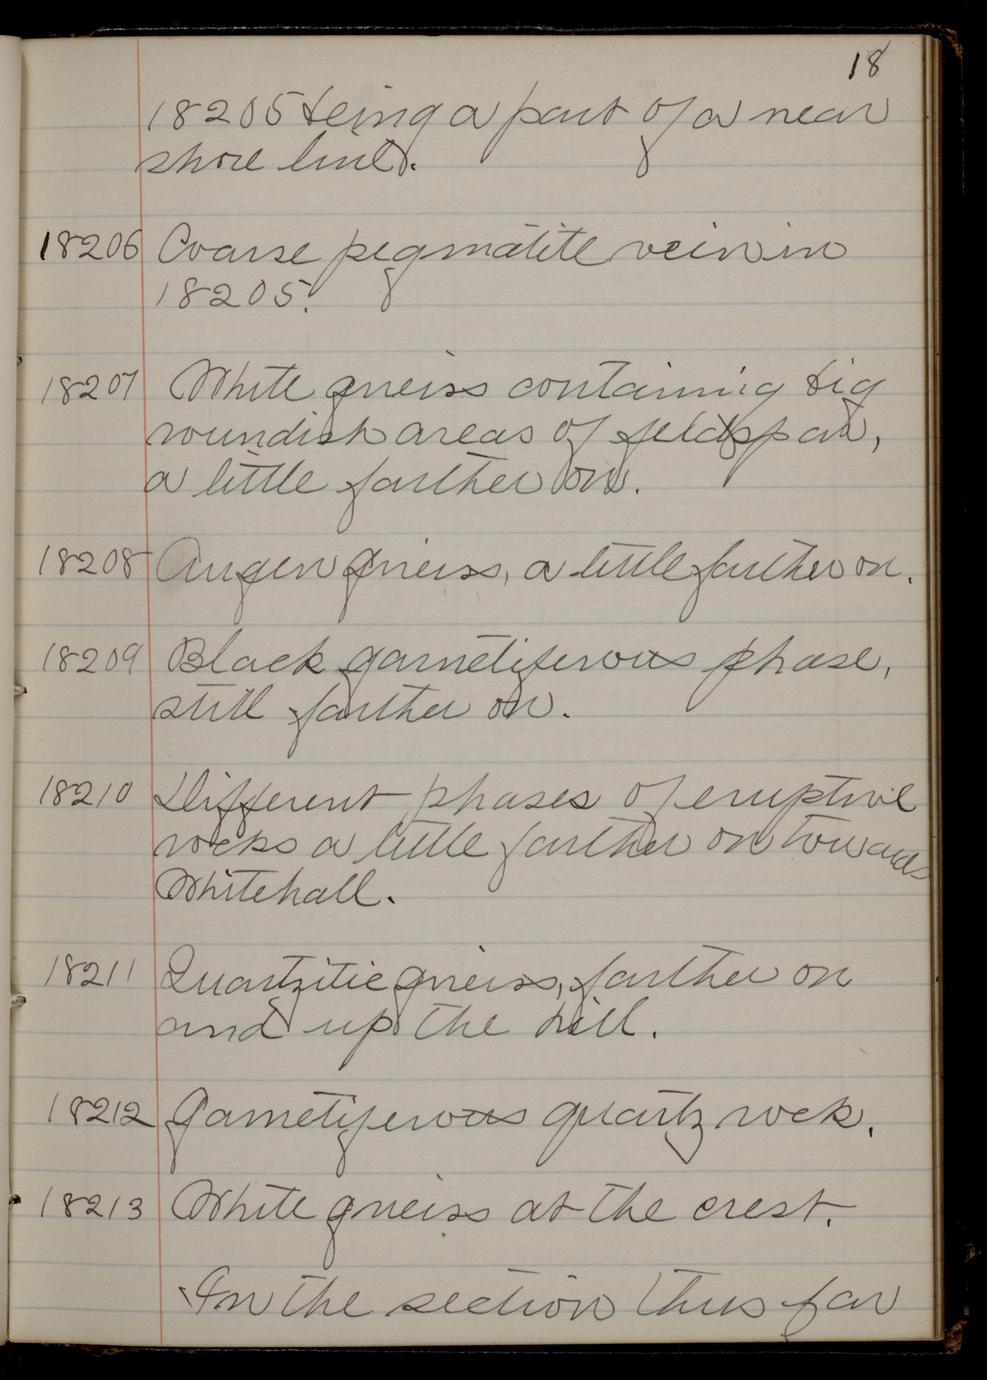 18
18205 being a part of a near
shore line).
18206 Coarse pegmatite vein in
18205.
18207 White gneiss containing big
roundish areas of feldspar,
a little farther on.
18208 Augen gneiss, a little farther on.
18209 Black garnetiferous phase,
still farther on.
18210 Different phases of eruptive
rocks a little farther on towards
Whitehall.
18211 Quartzitic gneiss, farther on
and up the hill.
18212 Garnetiferous quartz rock.
18213 White gneiss at the crest.
In the section thus far